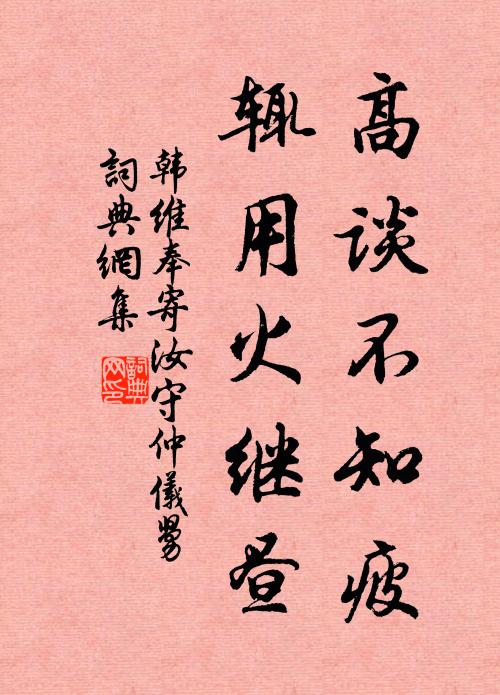 高谈不知疲
辄用火继昼
韩维奉寄汝守仲儀舅
詞典網集
詞典网印